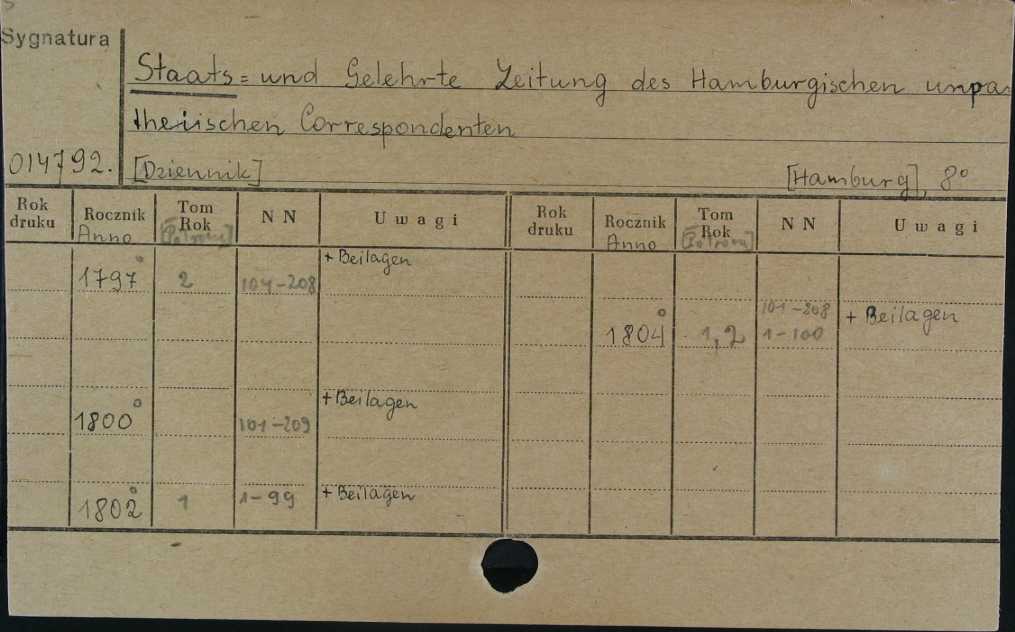 Sygnatura
Staats= und Gelehrte Zeitung des Hamburgischen unpa
theiischen Correspondenten
014792. [Dziennik] [Hamburg], 8°
Rok druku Rocznik Anno Tom Rok [Półrocze] N N Uwagi Rok druku Rocznik Anno Tom Rok [Półrocze] N N Uwagi
1797° 2 104-208 + Beilagen
1804° 1,2 101-208 1-100 + Beilagen
1800° 101-209 + Beilagen
1802° 1 1-99 + Beilagen